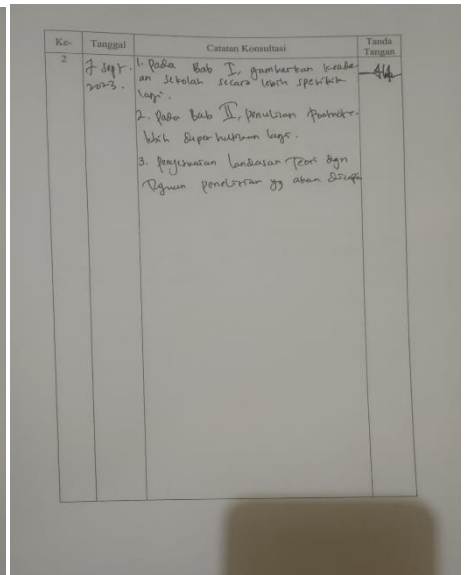 Ke-
Tanggal
Catatan Konsultasi
Tanda
Tangan
2
7 Sept.
2023.
1. Pada Bab I, gambarkan keada
an sekolah secara lebih spesifik
lagi.
2. Pada Bab II, penulisan
lebih diperhatikan lagi.
3. penyesuaian landasan Teori dgn
Tujuan penelitian yg akan dicapai